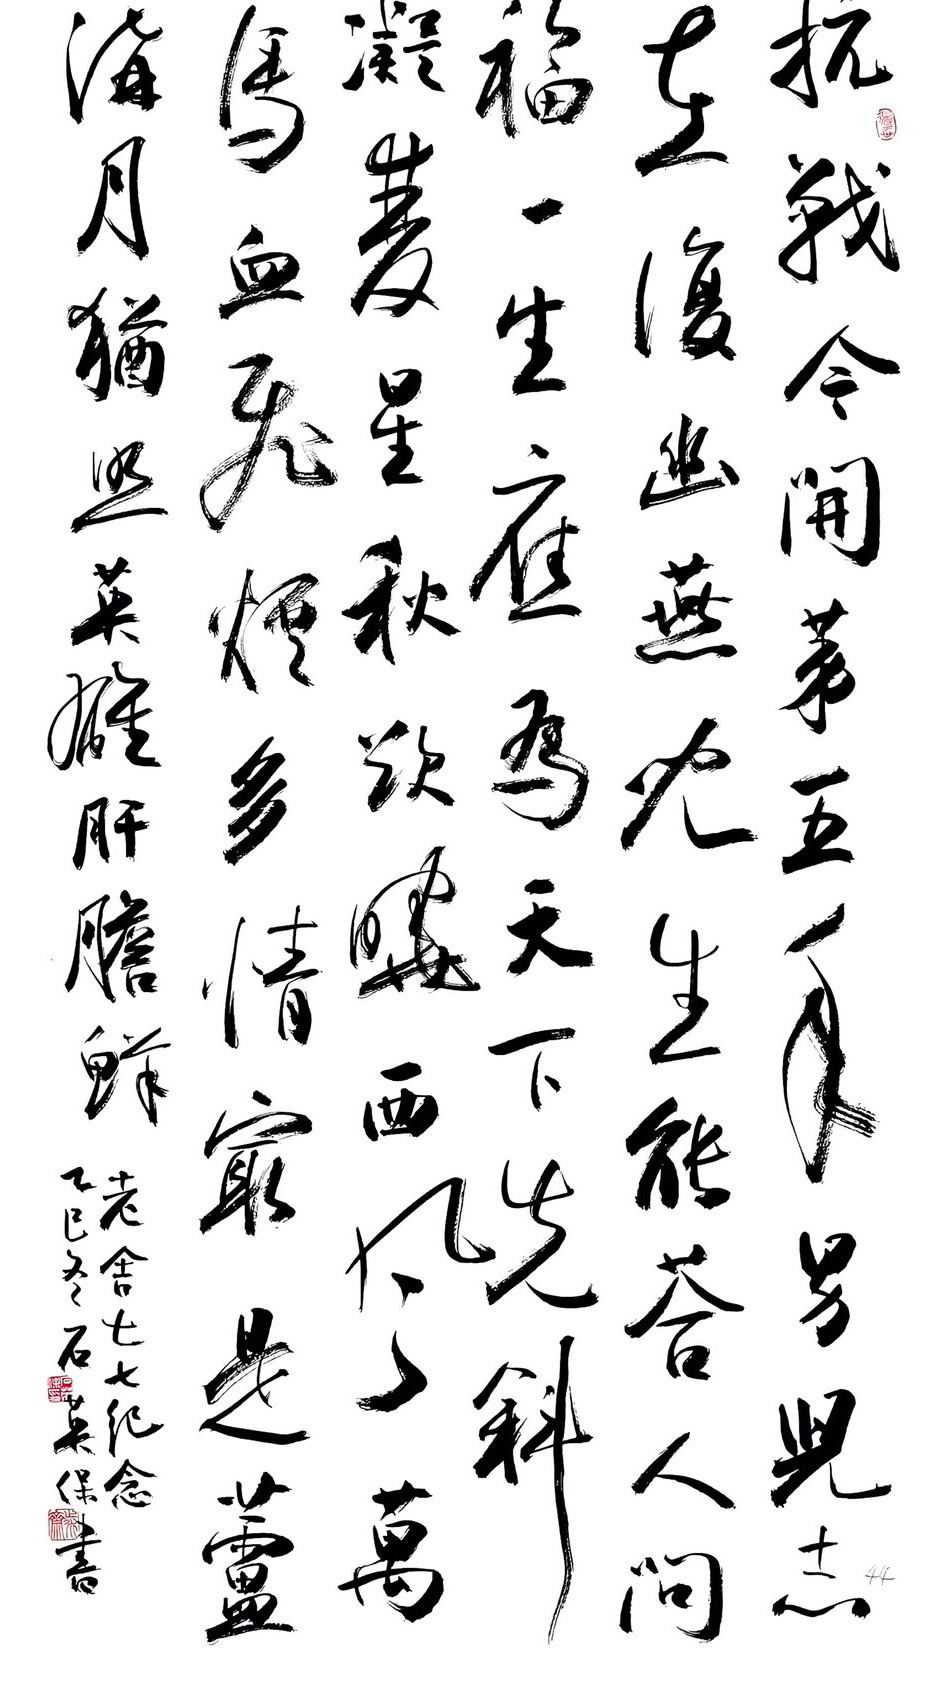 抗戰今開第五年男兒志
在復幽燕生能荅人間
福一生應爲天下先斜
凝星秋欲曉西風萬
馬血飛煙多情最是蘆
溝月猶照英雄肝膽鮮
老舍七七紀念
乙巳冬石英保書